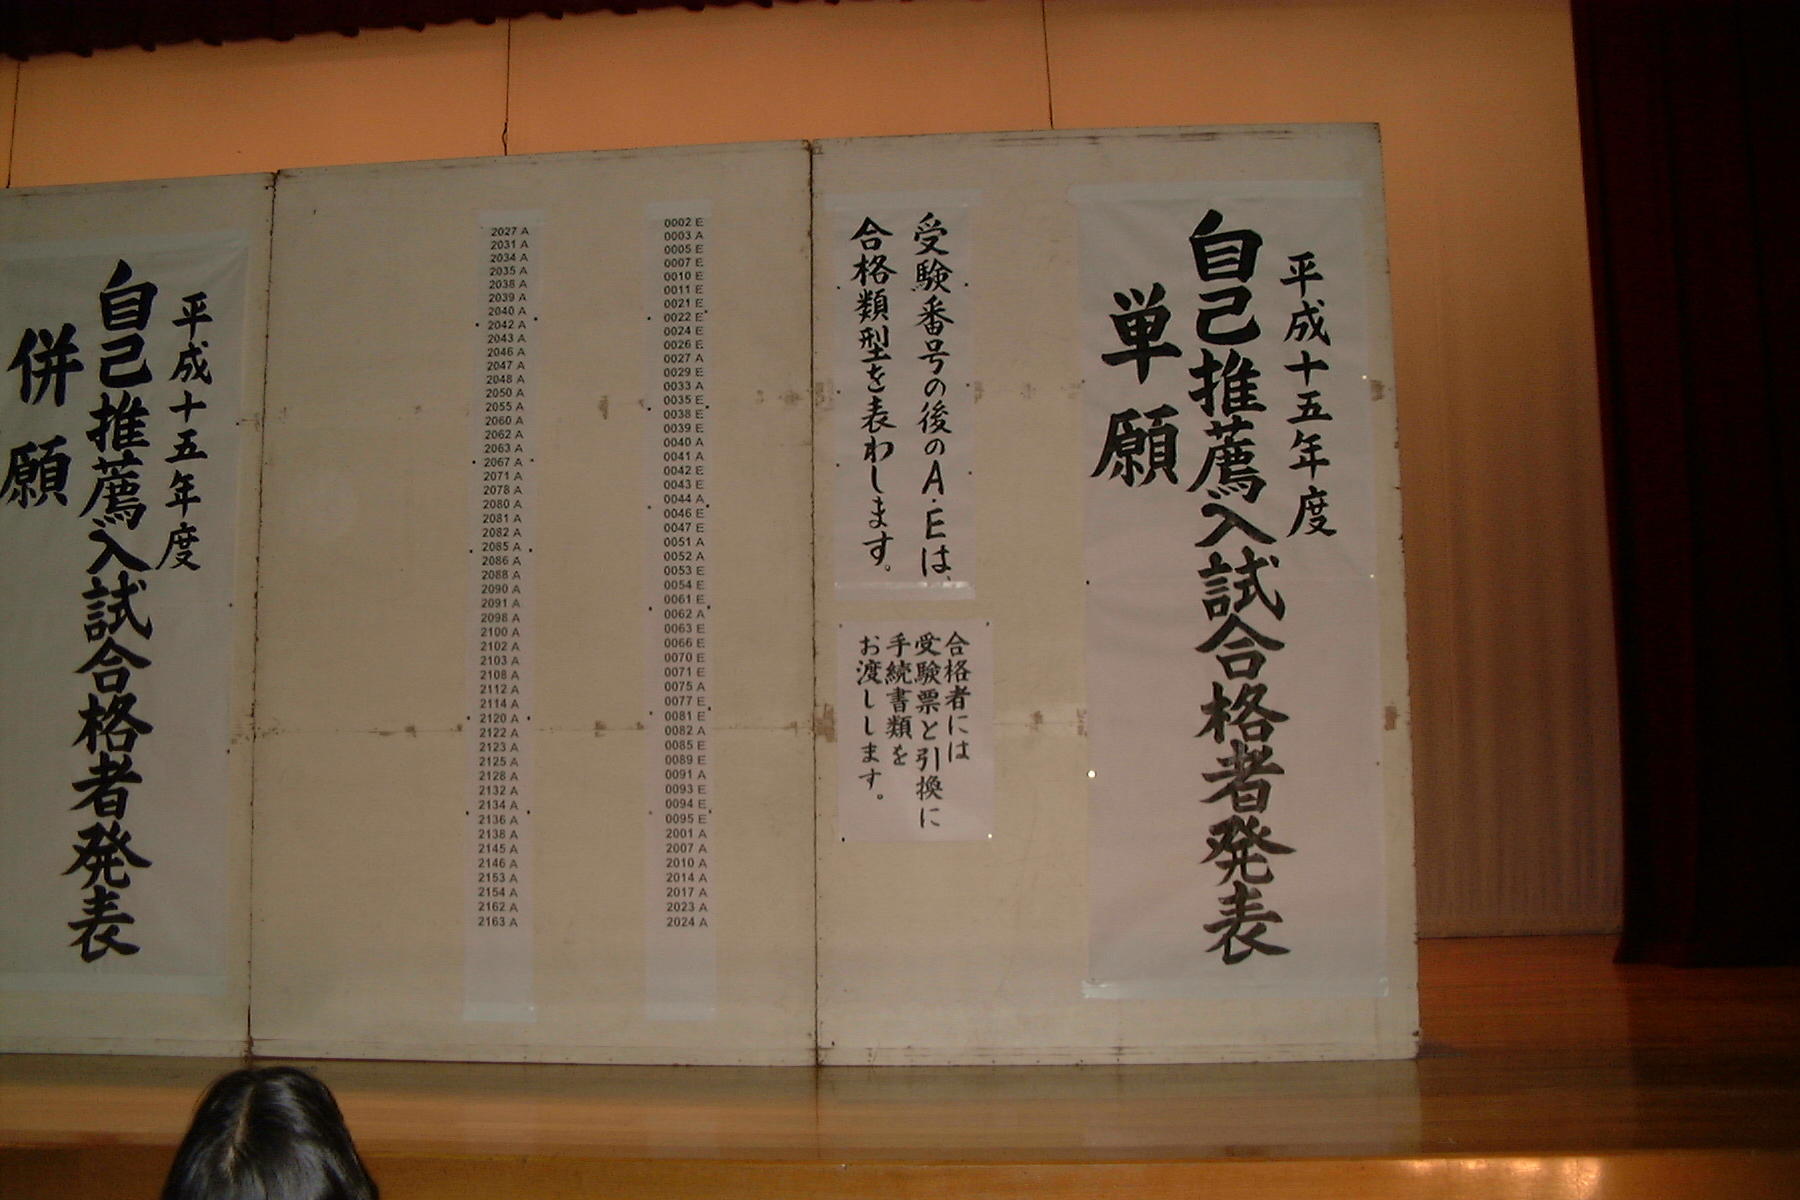 平成十五年度
自己推薦入試合格者発表
単願
受験番号の後のA・Eは、
合格類型を表わします。
合格者には
受験票と引換に
手続書類を
お渡しします。
0002 E
0003 A
0005 E
0007 E
0010 E
0011 E
0021 E
0022 E
0024 E
0026 E
0027 A
0029 E
0033 A
0035 E
0038 E
0039 E
0040 A
0041 A
0042 E
0043 E
0044 A
0046 E
0047 E
0051 A
0052 A
0053 E
0054 E
0061 E
0062 A
0063 E
0066 E
0070 E
0071 E
0075 A
0077 E
0081 E
0082 A
0085 E
0089 E
0091 A
0093 E
0094 E
0095 E
2001 A
2007 A
2010 A
2014 A
2017 A
2023 A
2024 A
2027 A
2031 A
2034 A
2035 A
2038 A
2039 A
2040 A
2042 A
2043 A
2046 A
2047 A
2048 A
2050 A
2055 A
2060 A
2062 A
2063 A
2067 A
2071 A
2078 A
2080 A
2081 A
2082 A
2085 A
2086 A
2088 A
2090 A
2091 A
2098 A
2100 A
2102 A
2103 A
2108 A
2112 A
2114 A
2120 A
2122 A
2123 A
2125 A
2128 A
2132 A
2134 A
2136 A
2138 A
2145 A
2146 A
2153 A
2154 A
2162 A
2163 A
平成十五年度
自己推薦入試合格者発表
併願